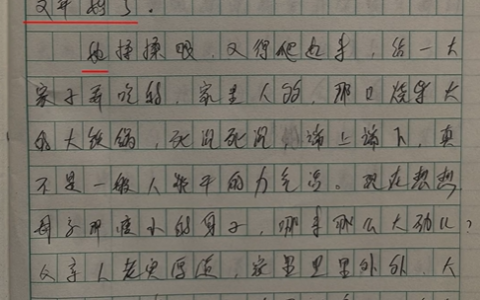 又开始了。
她揉揉眼，又得爬起来，给一大
家子弄吃的，家里人多，那口烧柴大
的大铁锅，死沉死沉，端上端下，真
不是一般人能干的力气活。现在想想
母亲那瘦小的身子，哪来那么大劲儿？
父亲人老实厚道，家里里里外外，大